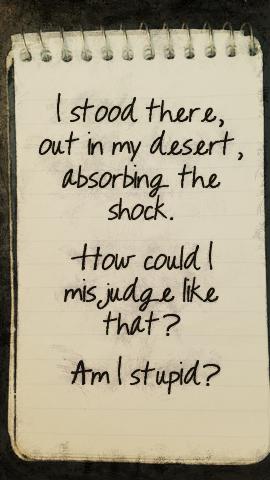 I stood there,
out in my desert,
absorbing the
shock.
How could I
misjudge like
that?
Am I stupid?